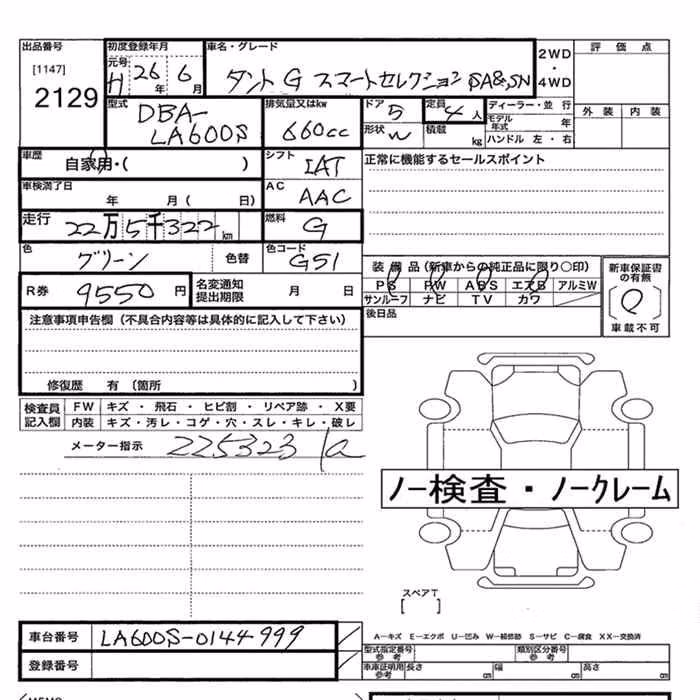 出品番号 初度登録年月 車名・グレード 2WD ・ 4WD 評価点
[1147] 元号 H 26年 6月 ダント G スマートセレクション SA&SN
2129
型式 DBA-LA600S 排気量又はkw 660cc ドア 5 定員 4人 ディーラー・並行 外装 内装
形状 W 積載 kg モデル年式 年
ハンドル 左・右
車歴 自家用・( ) シフト IAT 正常に機能するセールスポイント
車検満了日 年 月( 日) AC AAC
走行 22万5千322km 燃料 G
色 グリーン 色替 色コード G51
装備品(新車からの純正品に限り○印) 新車保証書の有無
R券 9550円 名変通知提出期限 月 日 PS PW ABS エアB アルミW
サンルーフ ナビ TV カワ 車載不可
注意事項申告欄(不具合内容等は具体的に記入して下さい) 後日品
修復歴 有(箇所 )
検査員記入欄 FW キズ・飛石・ヒビ割・リペア跡・X要
内装 キズ・汚レ・コゲ・穴・スレ・キレ・破レ
メーター指示 225323 la
ノー検査・ノークレーム
スペアT
[ ]
車台番号 LA600S-0144999
A-キズ E-エクボ U-凹み W-補修跡 S-サビ C-腐食 XX-交換済
登録番号
型式指定番号参考 類別区分番号参考
車車証明用参考 長さ cm 幅 cm 高さ cm
MEMO